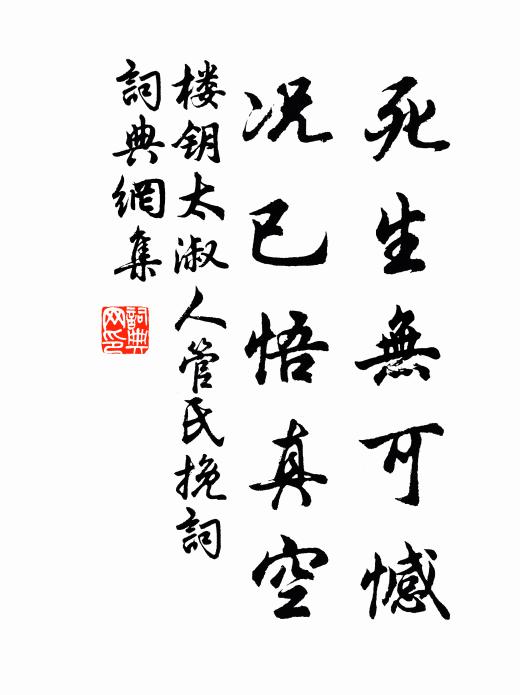 死生無可憾
况已悟真空
楼钥太淑人管氏挽詞
詞典網集
詞典
网印